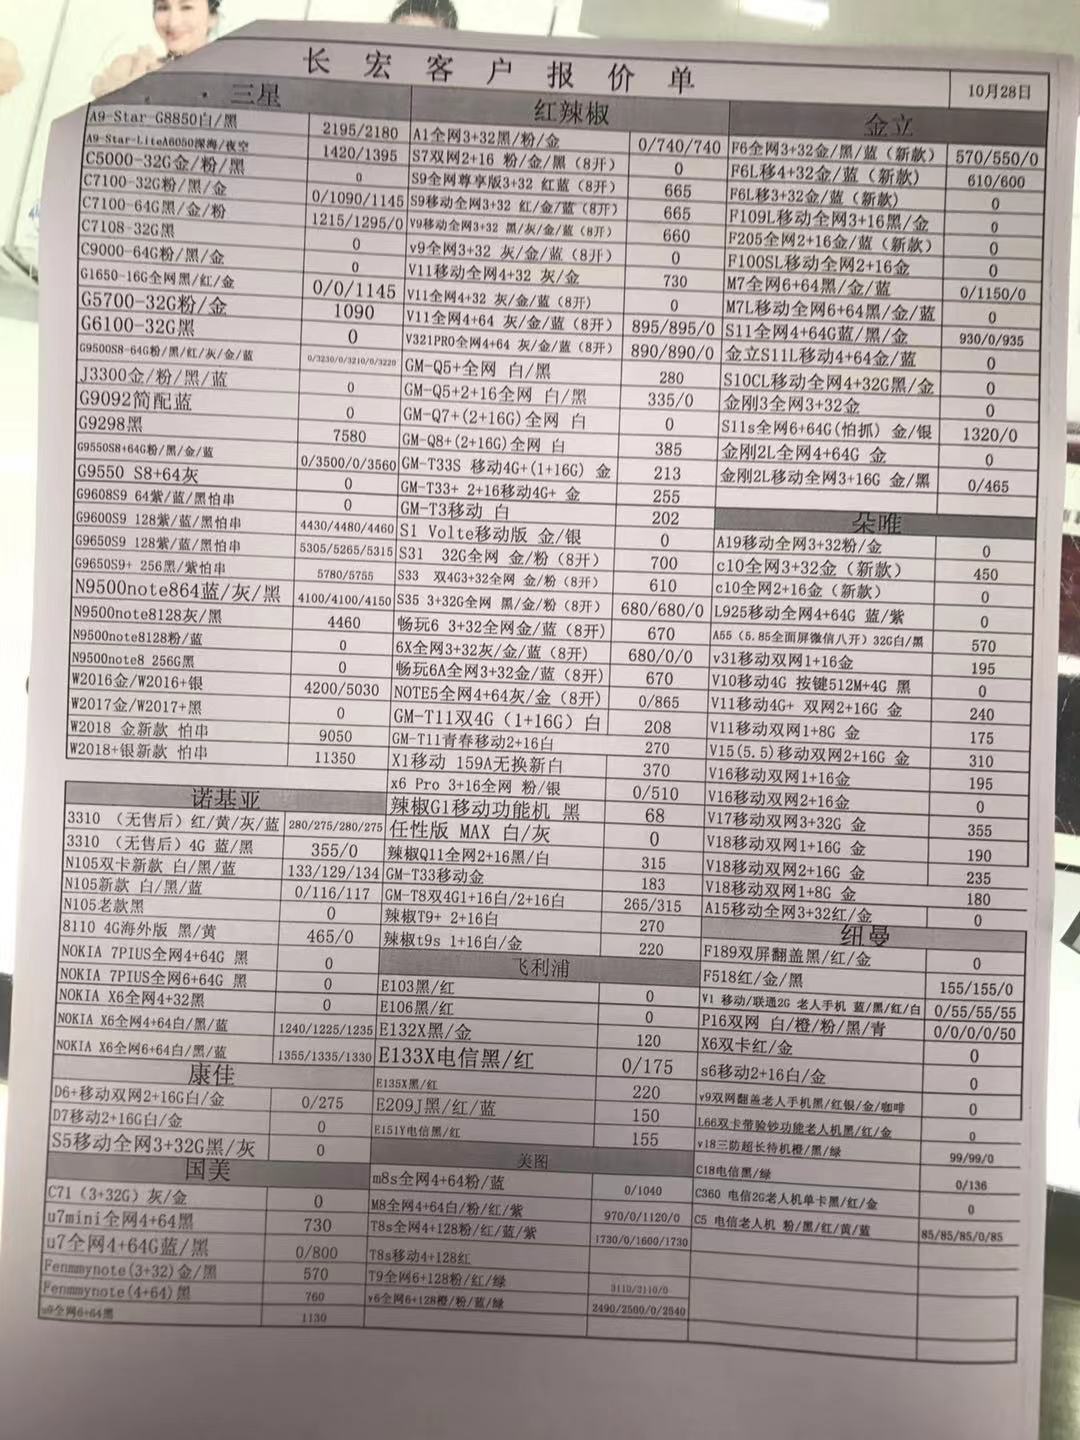 长宏客户报价单
10月28日
三星
A9-Star G8850白/黑 2195/2180
A9-Star-LiteA6050深海/夜空 1420/1395
C5000-32G金/粉/黑 0
C7100-32G粉/黑/金 0/1090/1145
C7100-64G黑/金/粉 1215/1295/0
C7108-32G黑 0
C9000-64G粉/黑/金 0
G1650-16G全网黑/红/金 0/0/1145
G5700-32G粉/金 1090
G6100-32G黑 0
G9500S8-64G粉/黑/红/灰/金/蓝 0/3230/0/3210/0/3220
J3300金/粉/黑/蓝 0
G9092简配蓝 0
G9298黑 7580
G9550S8+64G粉/黑/金/蓝 0/3500/0/3560
G9550 S8+64灰 0
G9608S9 64紫/蓝/黑怕串 0
G9600S9 128紫/蓝/黑怕串 4430/4480/4460
G9650S9 128紫/蓝/黑怕串 5305/5265/5315
G9650S9+ 256黑/紫怕串 5780/5755
N9500note864蓝/灰/黑 4100/4100/4150
N9500note8128灰/黑 4460
N9500note8128粉/蓝 0
N9500note8 256G黑 0
W2016金/W2016+银 4200/5030
W2017金/W2017+黑 0
W2018 金新款 怕串 9050
W2018+银新款 怕串 11350
诺基亚
3310 （无售后）红/黄/灰/蓝 280/275/280/275
3310 （无售后）4G 蓝/黑 355/0
N105双卡新款 白/黑/蓝 133/129/134
N105新款 白/黑/蓝 0/116/117
N105老款黑 0
8110 4G海外版 黑/黄 465/0
NOKIA 7PIUS全网4+64G 黑 0
NOKIA 7PIUS全网6+64G 黑 0
NOKIA X6全网4+32黑 0
NOKIA X6全网4+64白/黑/蓝 1240/1225/1235
NOKIA X6全网6+64白/黑/蓝 1355/1335/1330
康佳
D6+移动双网2+16G白/金 0/275
D7移动2+16G白/金 0
S5移动全网3+32G黑/灰 0
国美
C71（3+32G）灰/金 0
u7mini全网4+64黑 730
u7全网4+64G蓝/黑 0/800
Fenmmynote(3+32)金/黑 570
Fenmmynote(4+64)黑 760
u9全网6+64黑 1130
红辣椒
A1全网3+32黑/粉/金 0/740/740
S7双网2+16 粉/金/黑（8开） 0
S9全网尊享版3+32 红蓝（8开） 665
S9移动全网3+32 红/金/蓝（8开） 665
V9移动全网3+32 黑/灰/金/蓝（8开） 660
v9全网3+32 灰/金/蓝（8开） 0
V11移动全网4+32 灰/金 730
V11全网4+32 灰/金/蓝（8开） 0
V11全网4+64 灰/金/蓝（8开） 895/895/0
V321PRO全网4+64 灰/金/蓝（8开） 890/890/0
GM-Q5+全网 白/黑 280
GM-Q5+2+16全网 白/黑 335/0
GM-Q7+(2+16G)全网 白 0
GM-Q8+(2+16G)全网 白 385
GM-T33S 移动4G+(1+16G) 金 213
GM-T33+ 2+16移动4G+ 金 255
GM-T3移动 白 202
S1 Volte移动版 金/银 0
S31 32G全网 金/粉（8开） 700
S33 双4G3+32全网 金/粉（8开） 610
S35 3+32G全网 黑/金/粉（8开） 680/680/0
畅玩6 3+32全网金/蓝（8开） 670
6X全网3+32灰/金/蓝（8开） 680/0/0
畅玩6A全网3+32金/蓝（8开） 670
NOTE5全网4+64灰/金（8开） 0/865
GM-T11双4G（1+16G）白 208
GM-T11青春移动2+16白 270
X1移动 159A无换新白 370
x6 Pro 3+16全网 粉/银 0/510
辣椒G1移动功能机 黑 68
任性版 MAX 白/灰 0
辣椒Q11全网2+16黑/白 315
GM-T33移动金 183
GM-T8双4G1+16白/2+16白 265/315
辣椒T9+ 2+16白 270
辣椒t9s 1+16白/金 220
飞利浦
E103黑/红 0
E106黑/红 0
E132X黑/金 120
E133X电信黑/红 0/175
E135X黑/红 220
E209J黑/红/蓝 150
E151Y电信黑/红 155
美图
m8s全网4+64粉/蓝 0/1040
M8全网4+64白/粉/红/紫 970/0/1120/0
T8s全网4+128粉/红/蓝/紫 1730/0/1600/1730
T8s移动4+128红
T9全网6+128粉/红/绿 3110/3110/0
v6全网6+128橙/粉/蓝/绿 2490/2500/0/2540
金立
F6全网3+32金/黑/蓝（新款） 570/550/0
F6L移4+32金/蓝（新款） 610/600
F6L移3+32金/蓝（新款） 0
F109L移动全网3+16黑/金 0
F205全网2+16金/蓝（新款） 0
F100SL移动全网2+16金 0
M7全网6+64黑/金/蓝 0/1150/0
M7L移动全网6+64黑/金/蓝 0
S11全网4+64G蓝/黑/金 930/0/935
金立S11L移动4+64金/蓝 0
S10CL移动全网4+32G黑/金 0
金刚3全网3+32金 0
S11s全网6+64G(怕抓) 金/银 1320/0
金刚2L全网4+64G 金 0
金刚2L移动全网3+16G 金/黑 0/465
朵唯
A19移动全网3+32粉/金 0
c10全网3+32金（新款） 450
c10全网2+16金（新款） 0
L925移动全网4+64G 蓝/紫 0
A55（5.85全面屏微信八开）32G白/黑 570
v31移动双网1+16金 195
V10移动4G 按键512M+4G 黑 0
V11移动4G+ 双网2+16G 金 240
V11移动双网1+8G 金 175
V15(5.5)移动双网2+16G 金 310
V16移动双网1+16金 195
V16移动双网2+16金 0
V17移动双网3+32G 金 355
V18移动双网1+16G 金 190
V18移动双网2+16G 金 235
V18移动双网1+8G 金 180
A15移动全网3+32红/金 0
纽曼
F189双屏翻盖黑/红/金 0
F518红/金/黑 155/155/0
V1 移动/联通2G 老人手机 蓝/黑/红/白 0/55/55/55
P16双网 白/橙/粉/黑/青 0/0/0/0/50
X6双卡红/金 0
s6移动2+16白/金 0
v9双网翻盖老人手机黑/红银/金/咖啡 0
L66双卡带验钞功能老人机黑/红/金 0
v18三防超长待机橙/黑/绿 99/99/0
C18电信黑/绿 0/136
C360 电信2G老人机单卡黑/红/金 0
C5 电信老人机 粉/黑/红/黄/蓝 85/85/85/0/85